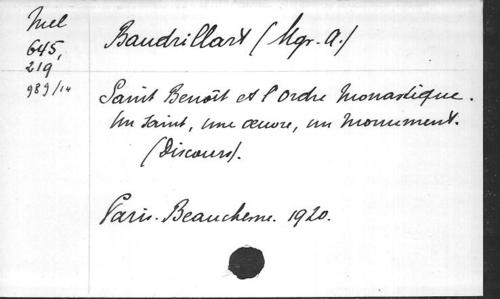 Mel
645,
219
989/14
Baudrillart (Mgr. A.)
Saint Benoît et l'Ordre Monastique.
Un Saint, une œuvre, un Monument.
(Discours).
Paris. Beauchesne. 1920.